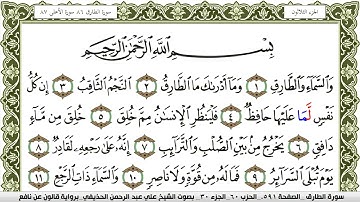 الجزء الثلاثون
سورة الطارق ٨٦ سورة الأعلى ٨٧
بِسْمِ اللَّهِ الرَّحْمَٰنِ الرَّحِيمِ
وَالسَّمَاءِ وَالطَّارِقِ ١ وَمَا أَدْرَىٰكَ مَا الطَّارِقُ ٢ النَّجْمُ الثَّاقِبُ ٣ إِن كُلُّ
نَفْسٍ لَّمَا عَلَيْهَا حَافِظٌ ٤ فَلْيَنظُرِ الْإِنسَٰنُ مِمَّ خُلِقَ ٥ خُلِقَ مِن مَّاءٍ
دَافِقٍ ٦ يَخْرُجُ مِنۢ بَيْنِ الصُّلْبِ وَالتَّرَائِبِ ٧ إِنَّهُ عَلَىٰ رَجْعِهِ لَقَادِرٌ ٨
يَوْمَ تُبْلَى السَّرَائِرُ ٩ فَمَا لَهُ مِن قُوَّةٍ وَلَا نَاصِرٍ ١٠ وَالسَّمَاءِ ذَاتِ الرَّجْعِ ١١
سورة الطارق - الصفحة ٥٩١ - الحزب ٦٠ - الجزء ٣٠ - بصوت الشيخ علي عبد الرحمن الحذيفي - برواية قالون عن نافع